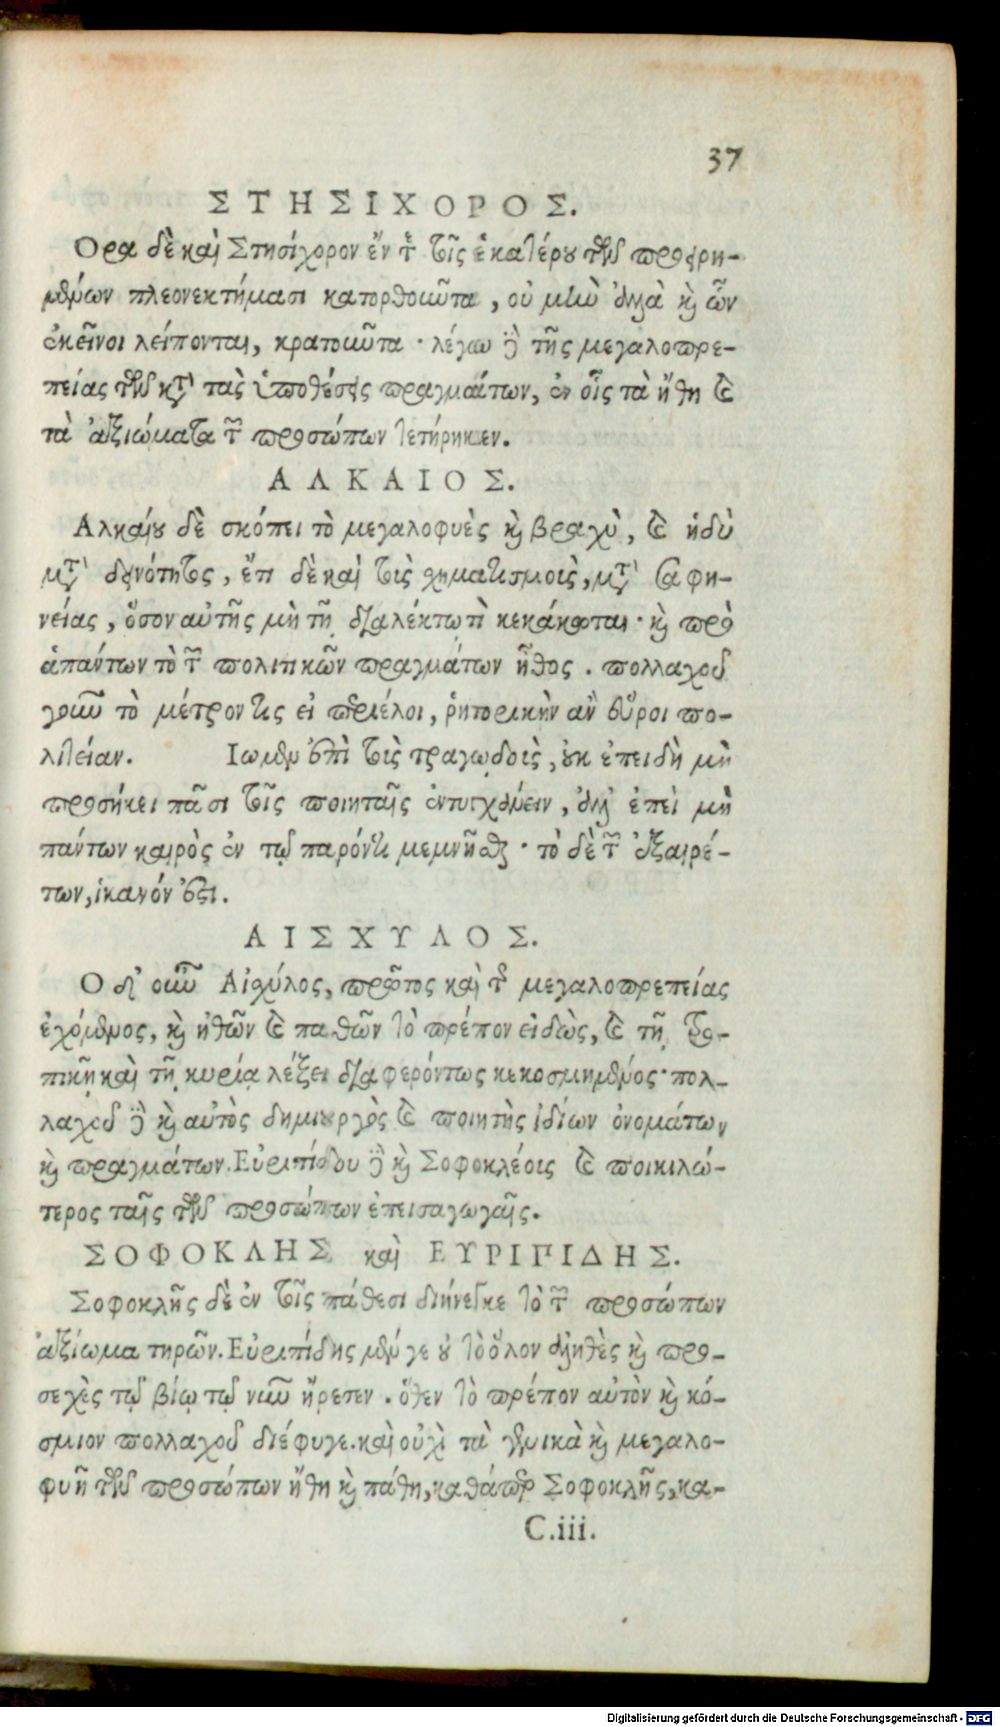 37
ΣΤΗΣΙΧΟΡΟΣ.
Ορα δὲ καὶ Στησίχορον ἔν τε τοῖς ἑκατέρου τῶν προειρη-
μένων πλεονεκτήμασι κατορθοῦντα, οὐ μὴν ἀλλὰ καὶ ὧν
ἐκεῖνοι λείπονται, κρατοῦντα· λέγω δὲ τῆς μεγαλοπρε-
πείας τῶν κατὰ τὰς ὑποθέσεις πραγμάτων, ἐν οἷς τὰ ἤθη καὶ
τὰ ἀξιώματα τῶν προσώπων τετήρηκεν.
ΑΛΚΑΙΟΣ.
Αλκαίου δὲ σκόπει τὸ μεγαλοφυὲς καὶ βραχὺ, καὶ ἡδὺ
μετὰ δεινότητος, ἔτι δὲ καὶ τοὺς σχηματισμοὺς, μετὰ σαφη-
νείας, ὅσον αὐτῆς μὴ τῇ διαλέκτῳ τὶ κεκάκωται· καὶ πρὸ
ἁπάντων τὸ τῶν πολιτικῶν πραγμάτων ἦθος. πολλαχοῦ
γοῦν τὸ μέτρον τις εἰ περιέλοι, ῥητορικὴν ἂν εὕροι πο-
λιτείαν. Ιωμεν ἐπὶ τοὺς τραγῳδοὺς, οὐκ ἐπειδὴ μὴ
προσήκει πᾶσι τοῖς ποιηταῖς ἐντυγχάνειν, ἀλλ' ἐπεὶ μὴ
πάντων καιρὸς ἐν τῷ παρόντι μεμνῆσθαι· τὸ δὲ τῶν ἐξαιρέ-
των, ἱκανόν ἐστι.
ΑΙΣΧΥΛΟΣ.
Ο δ' οὖν Αἰσχύλος, πρῶτος καὶ τῆς μεγαλοπρεπείας
ἐχόμενος, καὶ ἠθῶν καὶ παθῶν τὸ πρέπον εἰδὼς, καὶ τῇ τρο-
πικῇ καὶ τῇ κυρίᾳ λέξει διαφερόντως κεκοσμημένος· πολ-
λαχοῦ δὲ καὶ αὐτὸς δημιουργὸς καὶ ποιητὴς ἰδίων ὀνομάτων
καὶ πραγμάτων. Εὐριπίδου δὲ καὶ Σοφοκλέους καὶ ποικιλώ-
τερος ταῖς τῶν προσώπων ἐπεισαγωγαῖς.
ΣΟΦΟΚΛΗΣ καὶ ΕΥΡΙΠΙΔΗΣ.
Σοφοκλῆς δὲ ἐν τοῖς πάθεσι διήνεγκε τὸ τῶν προσώπων
ἀξίωμα τηρῶν. Εὐριπίδης μέν γε οὐ τὸ ὅλον ἀληθὲς καὶ προ-
σεχὲς τῷ βίῳ τῷ νῦν ἤρεσεν. ὅθεν τὸ πρέπον αὐτὸν καὶ κό-
σμιον πολλαχοῦ διέφυγε. καὶ οὐχὶ τὰ γεννικὰ καὶ μεγαλο-
φυῆ τῶν προσώπων ἤθη καὶ πάθη, καθάπερ Σοφοκλῆς, κα-
C.iii.
Digitalisierung gefördert durch die Deutsche Forschungsgemeinschaft - DFG